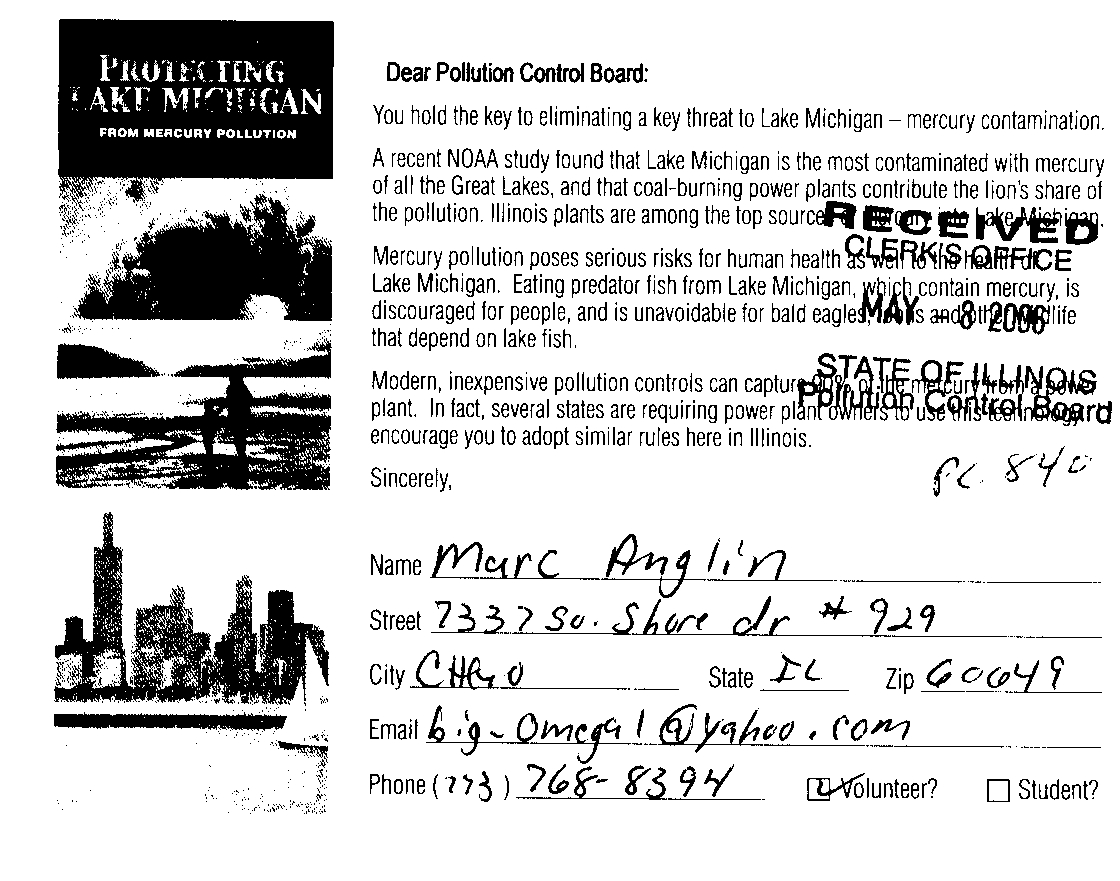 PROTECTING
LAKE MICHIGAN
FROM MERCURY POLLUTION
Dear Pollution Control Board:
You hold the key to eliminating a key threat to Lake Michigan – mercury contamination.
A recent NOAA study found that Lake Michigan is the most contaminated with mercury
of all the Great Lakes, and that coal-burning power plants contribute the lion's share of
the pollution. Illinois plants are among the top sources of mercury into Lake Michigan.
RECEIVED
CLERK'S OFFICE
MAY - 8 2006
STATE OF ILLINOIS
Pollution Control Board
Mercury pollution poses serious risks for human health as well to the health of
Lake Michigan. Eating predator fish from Lake Michigan, which contain mercury, is
discouraged for people, and is unavoidable for bald eagles, and other wildlife
that depend on lake fish.
Modern, inexpensive pollution controls can capture 90% of the mercury from a power
plant. In fact, several states are requiring power plant owners to use this technology
encourage you to adopt similar rules here in Illinois.
Sincerely,
PC 840
Name Marc Anglin
Street 7337 So. Shore dr # 929
City CHGO State IL Zip 60649
Email big-Omega1@yahoo.com
Phone (773) 768-8394 Volunteer? Student?